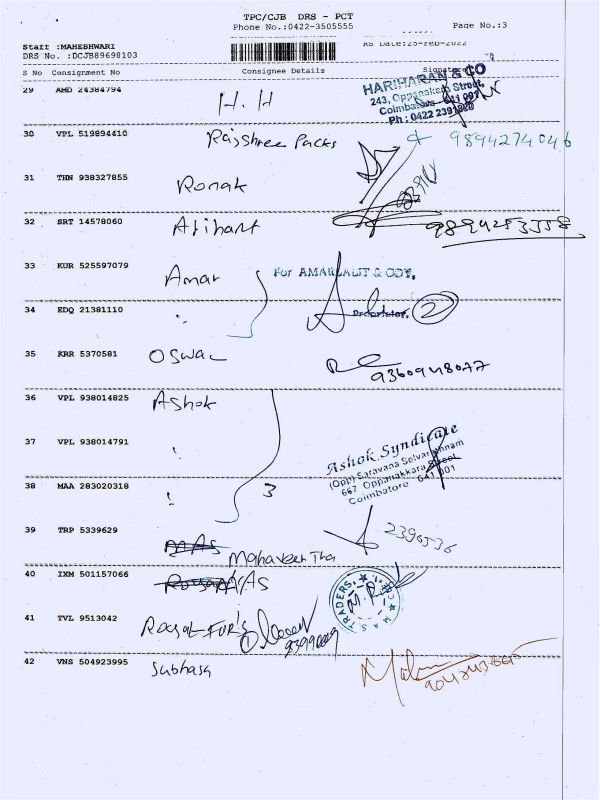 TPC/CJB DRS - PCT
Phone No.:0422-3505555
Page No.:3
Staff :MAHESHWARI
DRS No. :DCJB89698103
RS Date:25-Feb-2022
S No Consignment No Consignee Details Signature
29 AMD 24384794 H.H
HARIHARAN & CO
243, Oppanakara Street,
Coimbatore - 641 001
Ph : 0422 2391820
30 VPL 519894410 Rajshree Packs 9894274046
31 THN 938327855 Ronak
32 SRT 14578060 Arihant
33 KUR 525597079 Amar
For AMARLALIT & COY.
34 EDQ 21381110 "
Proprietor. 2
35 KRR 5370581 Oswal
9360948077
36 VPL 938014825 Ashok
37 VPL 938014791 "
Ashok Syndicate
(Opp) Saravana Selvarathnam
667 Oppanakkara Street
Coimbatore 641 001
38 MAA 283020318 " 3
39 TRP 5339629 MAS Mahaveer Tha
2390536
40 IXM 501157066 MAS
M.A.S TRADERS
41 TVL 9513042 Royal FUR's 1
42 VNS 504923995 Subhash